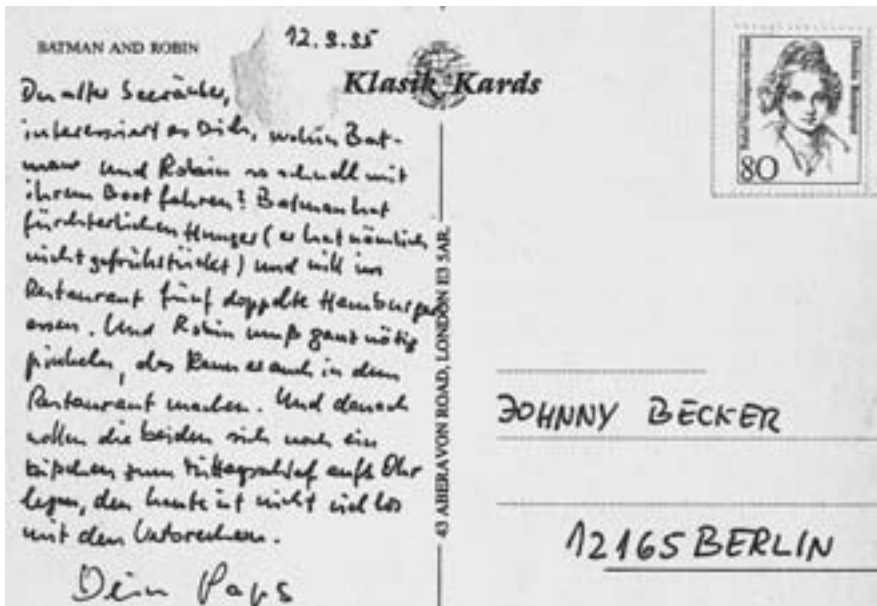 BATMAN AND ROBIN
12.9.95
Klasik Kards
Du alter Seeräuber,
interessiert es Dich, wohin Bat-
man und Robin so schnell mit
ihrem Boot fahren? Batman hat
fürchterlichen Hunger (er hat nämlich
nicht gefrühstückt) und will im
Restaurant fünf doppelte Hamburger
essen. Und Robin muß ganz nötig
pinkeln, das kann er auch in dem
Restaurant machen. Und danach
wollen die beiden sich noch ein
bißchen zum Mittagsschlaf aufs Ohr
legen, den heute ist nicht viel los
mit den Verbrechern.
Dein Paps
43 ABERAVON ROAD, LONDON E3 5AR.
80
Deutsche Bundespost
JOHNNY BECKER
12165 BERLIN